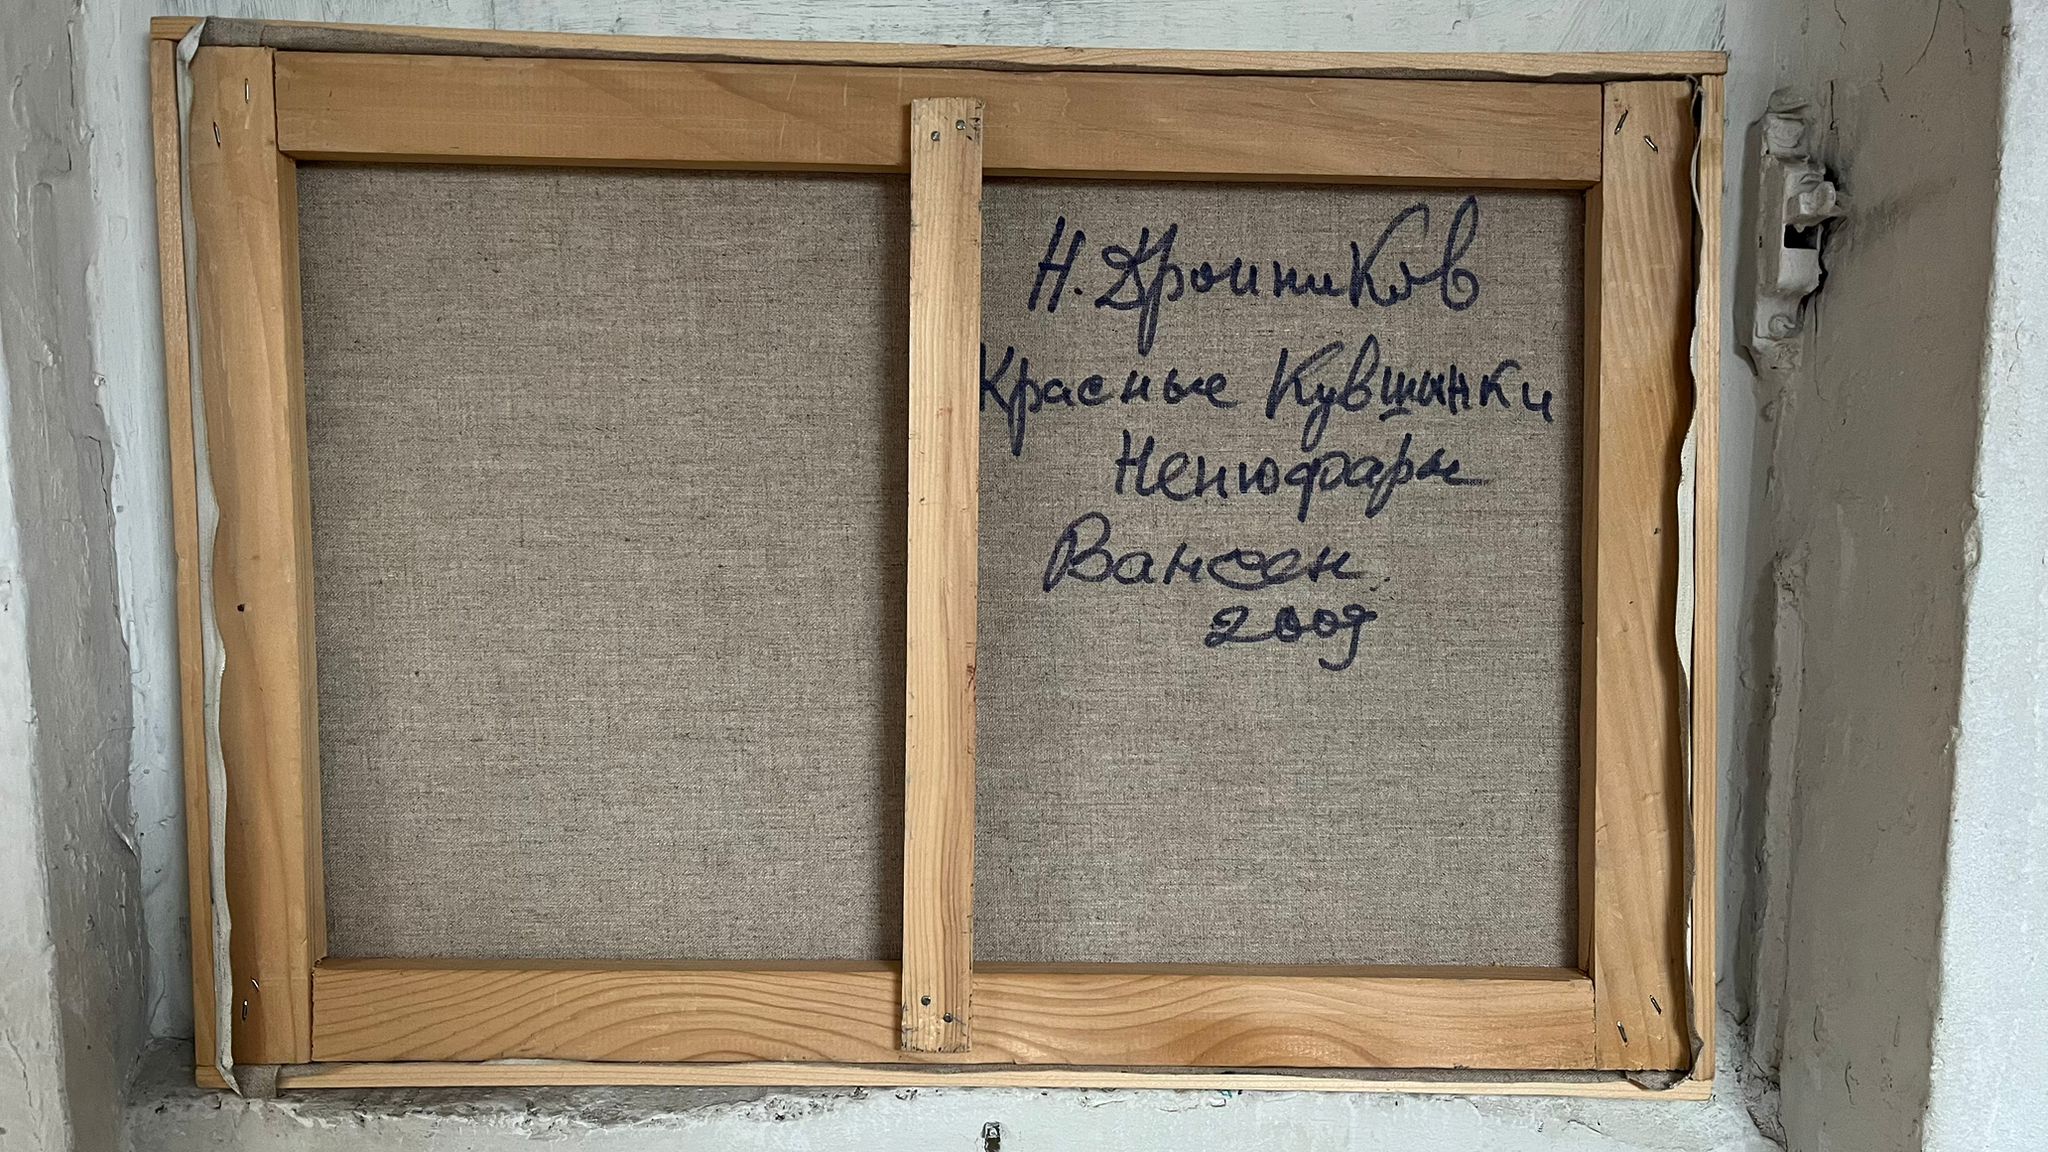 Н. Дронников
Красные Кувшинки
Ненюфары
Вансен.
2009